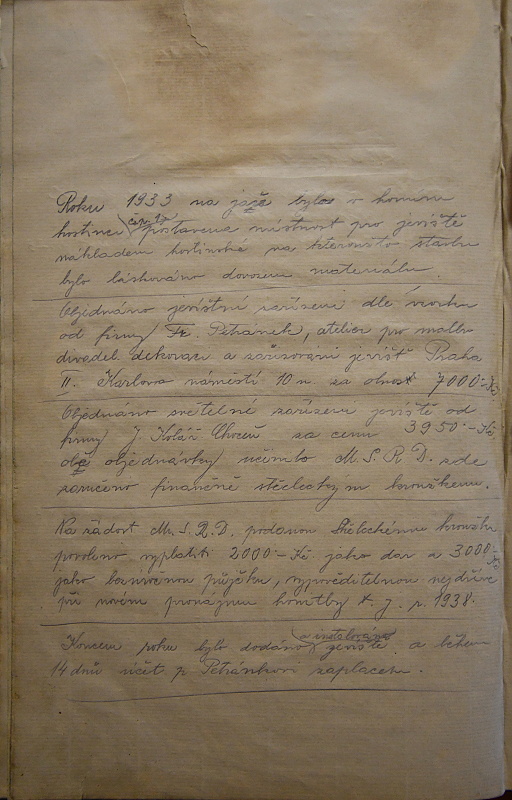 Roku 1933 na jaře bylo v
hostinci postavena místnost pro jeviště
nákladem hostinské na kteroužto stavbu
bylo láskováno dovozem materiálu.
Objednáno jevištní zařízení dle vzorku
od firmy Fr. Petránek, atelier pro malbu
divadel. dekorací a zařizování jevišť Praha
II. Karlovo náměstí 10 n. za obnos 7000·- Kč
Objednáno světelné zařízení jeviště od
firmy J. Kolář Choceň za cenu 3950·- Kč
obě objednávky učinilo M.S.R.D. zde
zaručeno finančně střeleckým kroužkem.
Na žádost M.S.R.D. podanou Střeleckému kroužku
povoleno vyplatit 2000·- Kč jako dar a 3000·- Kč
jako bezúročnou půjčku, vypověditelnou nejdříve
při novém pronájmu honitby t. j. r. 1938.
Koncem roku bylo dodáno a instalováno jeviště a během
14 dnů účet p. Petránkovi zaplacen.